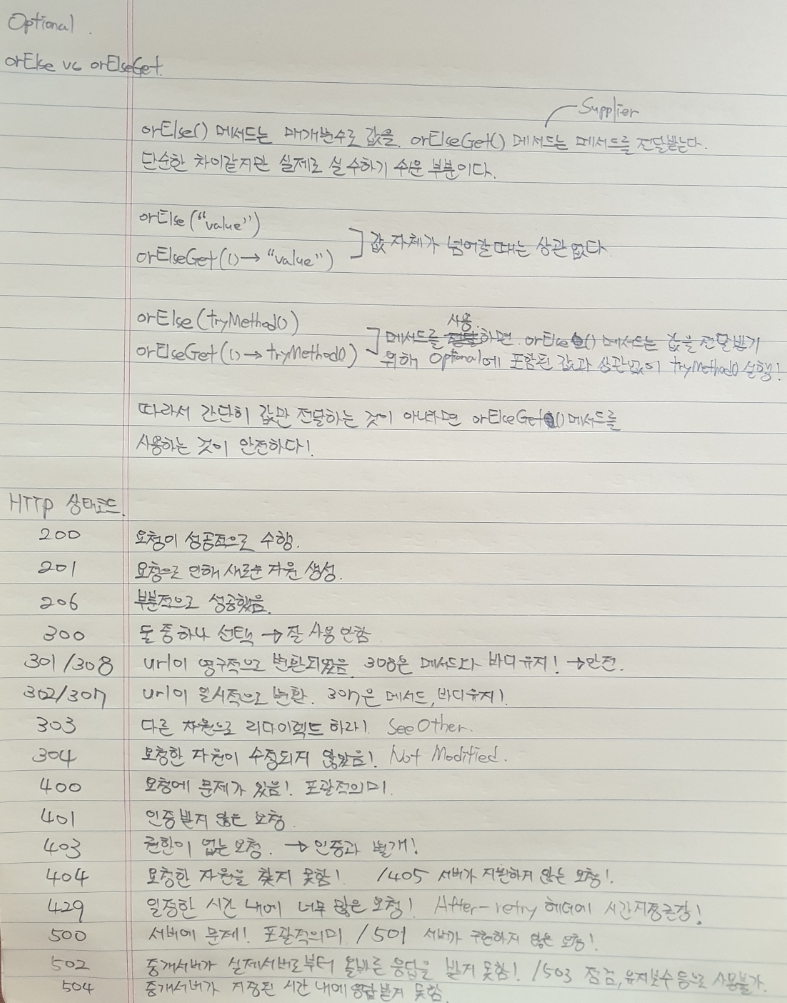 Optional.
orElse vs orElseGet.
Supplier
orElse() 메서드는 매개변수로 값을, orElseGet() 메서드는 메서드를 전달받는다.
단순한 차이같지만 실제로 실수하기 쉬운 부분이다.
orElse("value")
orElseGet(() → "value")
값 자체가 넘어갈 때는 상관 없다
orElse(tryMethod())
orElseGet(() → tryMethod())
사용
메서드를 하면 orElse() 메서드는 값을 전달받기
위해 Optional에 포함된 값과 상관없이 tryMethod() 실행!
따라서 간단히 값만 전달하는 것이 아니라면 orElseGet() 메서드를
사용하는 것이 안전하다!
HTTP 상태코드.
200 요청이 성공적으로 수행.
201 요청으로 인해 새로운 자원 생성.
206 부분적으로 성공했음.
300 둘 중 하나 선택 → 잘 사용 안함
301/308 url이 영구적으로 변환되었음. 308은 메서드와 바디 유지! → 안전.
302/307 url이 일시적으로 변환. 307은 메서드, 바디유지!
303 다른 자원으로 리다이렉트 하라! See Other.
304 요청한 자원이 수정되지 않았음! Not Modified.
400 요청에 문제가 있음! 포괄적의미.
401 인증받지 않은 요청.
403 권한이 없는 요청. → 인증과 별개!
404 요청한 자원을 찾지 못함! /405 서버가 지원하지 않는 요청!
429 일정한 시간 내에 너무 많은 요청! After-retry 헤더에 시간지정권장!
500 서버에 문제! 포괄적의미 /501 서버가 구현하지 않은 요청!
502 중개서버가 실제서버로부터 올바른 응답을 받지 못함! /503 점검, 유지보수 등으로 사용불가.
504 중개서버가 지정된 시간 내에 응답 받지 못함